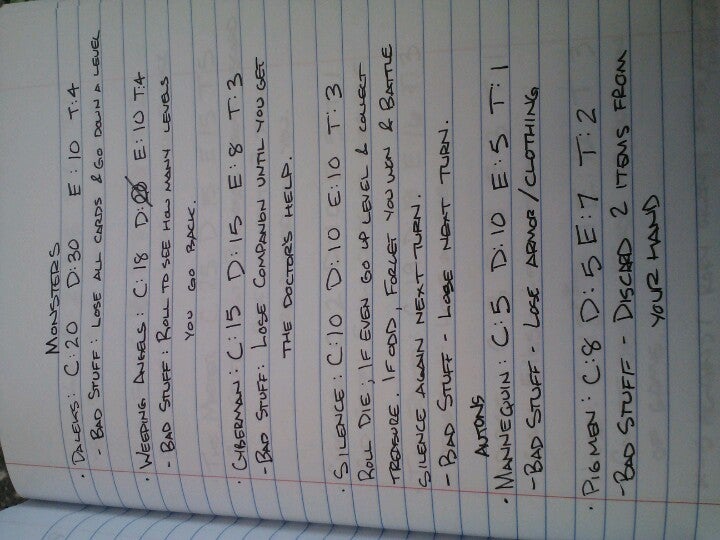 MONSTERS
• DALEKS: C:20 D:30 E:10 T:4
- BAD STUFF: LOSE ALL CARDS & GO DOWN A LEVEL
• WEEPING ANGELS: C:18 D: E:10 T:4
- BAD STUFF: ROLL TO SEE HOW MANY LEVELS
YOU GO BACK.
• CYBERMAN: C:15 D:15 E:8 T:3
- BAD STUFF: LOSE COMPANION UNTIL YOU GET
THE DOCTOR'S HELP.
• SILENCE: C:10 D:10 E:10 T:3
ROLL DIE; IF EVEN GO UP LEVEL & COLLECT
TREASURE. IF ODD, FORGET YOU WON & BATTLE
SILENCE AGAIN NEXT TURN.
- BAD STUFF - LOSE NEXT TURN.
AUTONS
• MANNEQUIN: C:5 D:10 E:5 T:1
- BAD STUFF - LOSE ARMOR/CLOTHING
• PIGMEN: C:8 D:5 E:7 T:2
- BAD STUFF - DISCARD 2 ITEMS FROM
YOUR HAND